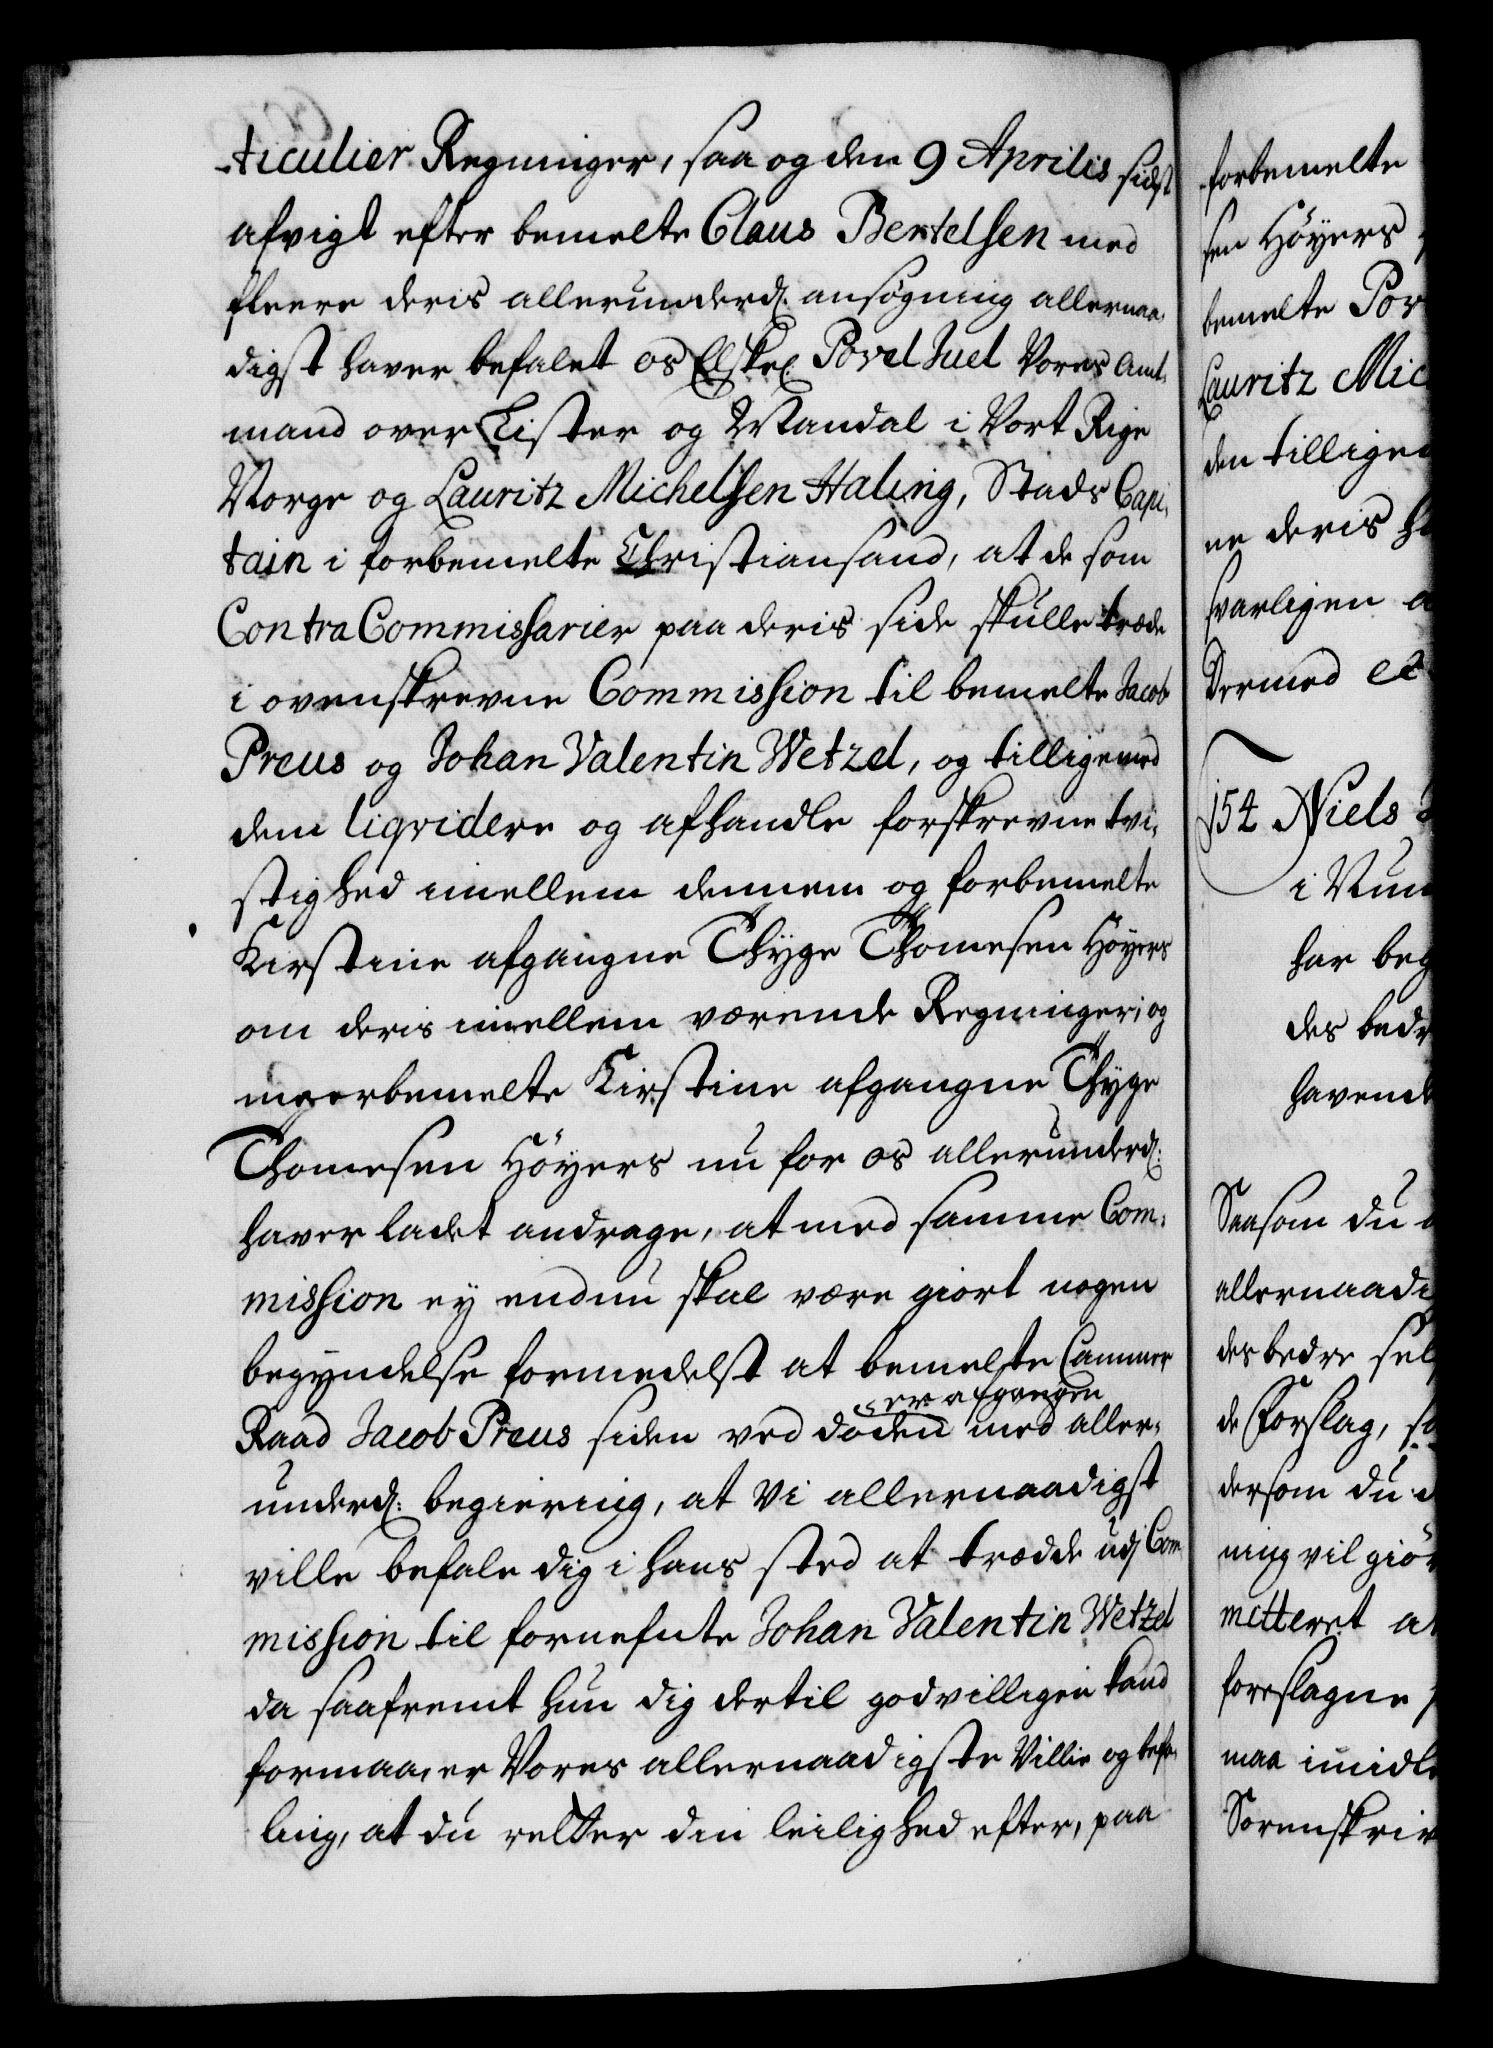 -ticulier Regninger, saa og den 9 Aprilis sidst
afvigt efter bemelte Claus Bertelsen med
fleere deris allerunderd: ansøgning allernaa-
digst haver befalet os Elskel: Povel Juel Vores Amt-
mand over Lister og Mandal i Vort Rige
Norge og Lauritz Michelsen Haling, Stads Capi-
tain i forbemelte Christiansand, at de som
Contra Commissarier paa deris side skulle træde
i ovenskrevne Commission til bemelte Jacob
Preus og Johan Valentin Wetzel, og tilligemed
dem liqvidere og afhandle forskrevne tvi-
stighed imellem dennem og forbemelte
Kirstine afgangne Thyge Thomesen Høyers
om deris imellem værende Regninger; og
meerbemelte Kirstine afgangne Thyge
Thomesen Høyers nu for os allerunderd:
haver ladet andrage, at med samme Com-
mission ey endnu skal være giort nogen
begyndelse formedelst at bemelte Cammer
er afgangen
Raad Jacob Preus siden ved døden med aller-
underd: begiering, at Vi allernaadigst
ville befale dig i hans sted at trædde udj Com-
mission til fornefnte Johan Valentin Wetzel
da saafremt hun dig dertil godvilligen kand
formaa, er Vores allernaadigste Villie og befa-
ling, at du retter din leilighed efter, paa
forbemelte
sen Høyers
bemelte Pov
Lauritz Mic
den tilligem
ne deris
svarligen
Dermed
154 Niels
i
har beg
des bedr
havend
Saasom du
allernaadi
des bedre sel
de Forslag, so
dersom du
ning vil giør
mitteret
foreslagne
maa imidle
Sorenskriv